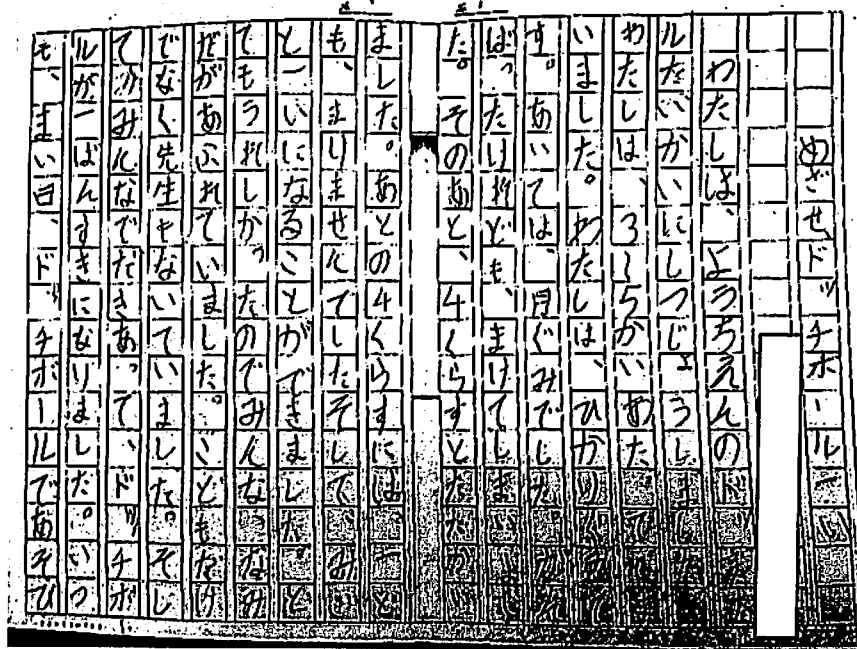 めざせ、ドッチボール一い
わたしは、ようちえんのド
ルたいかいにしつじょうしまし
わたしは、3〜5かいあた
いました。わたしは、ひかり
す。あいては、月ぐみでし
ばったけれども、まけてしまい
た。そのあと、4くらすとたたかい
ました。あとの4くらすには一ど
も、まりませんでしたそして、み
と一いになることができました。と
てもうれしかったのでみんななみ
だがあふれていました。こどもだけ
でなく先生もないていました。そし
てみんなでだきあって、ドッチボ
ルが一ばんすきになりました。いつ
も、まい日、ドッチボールであそび